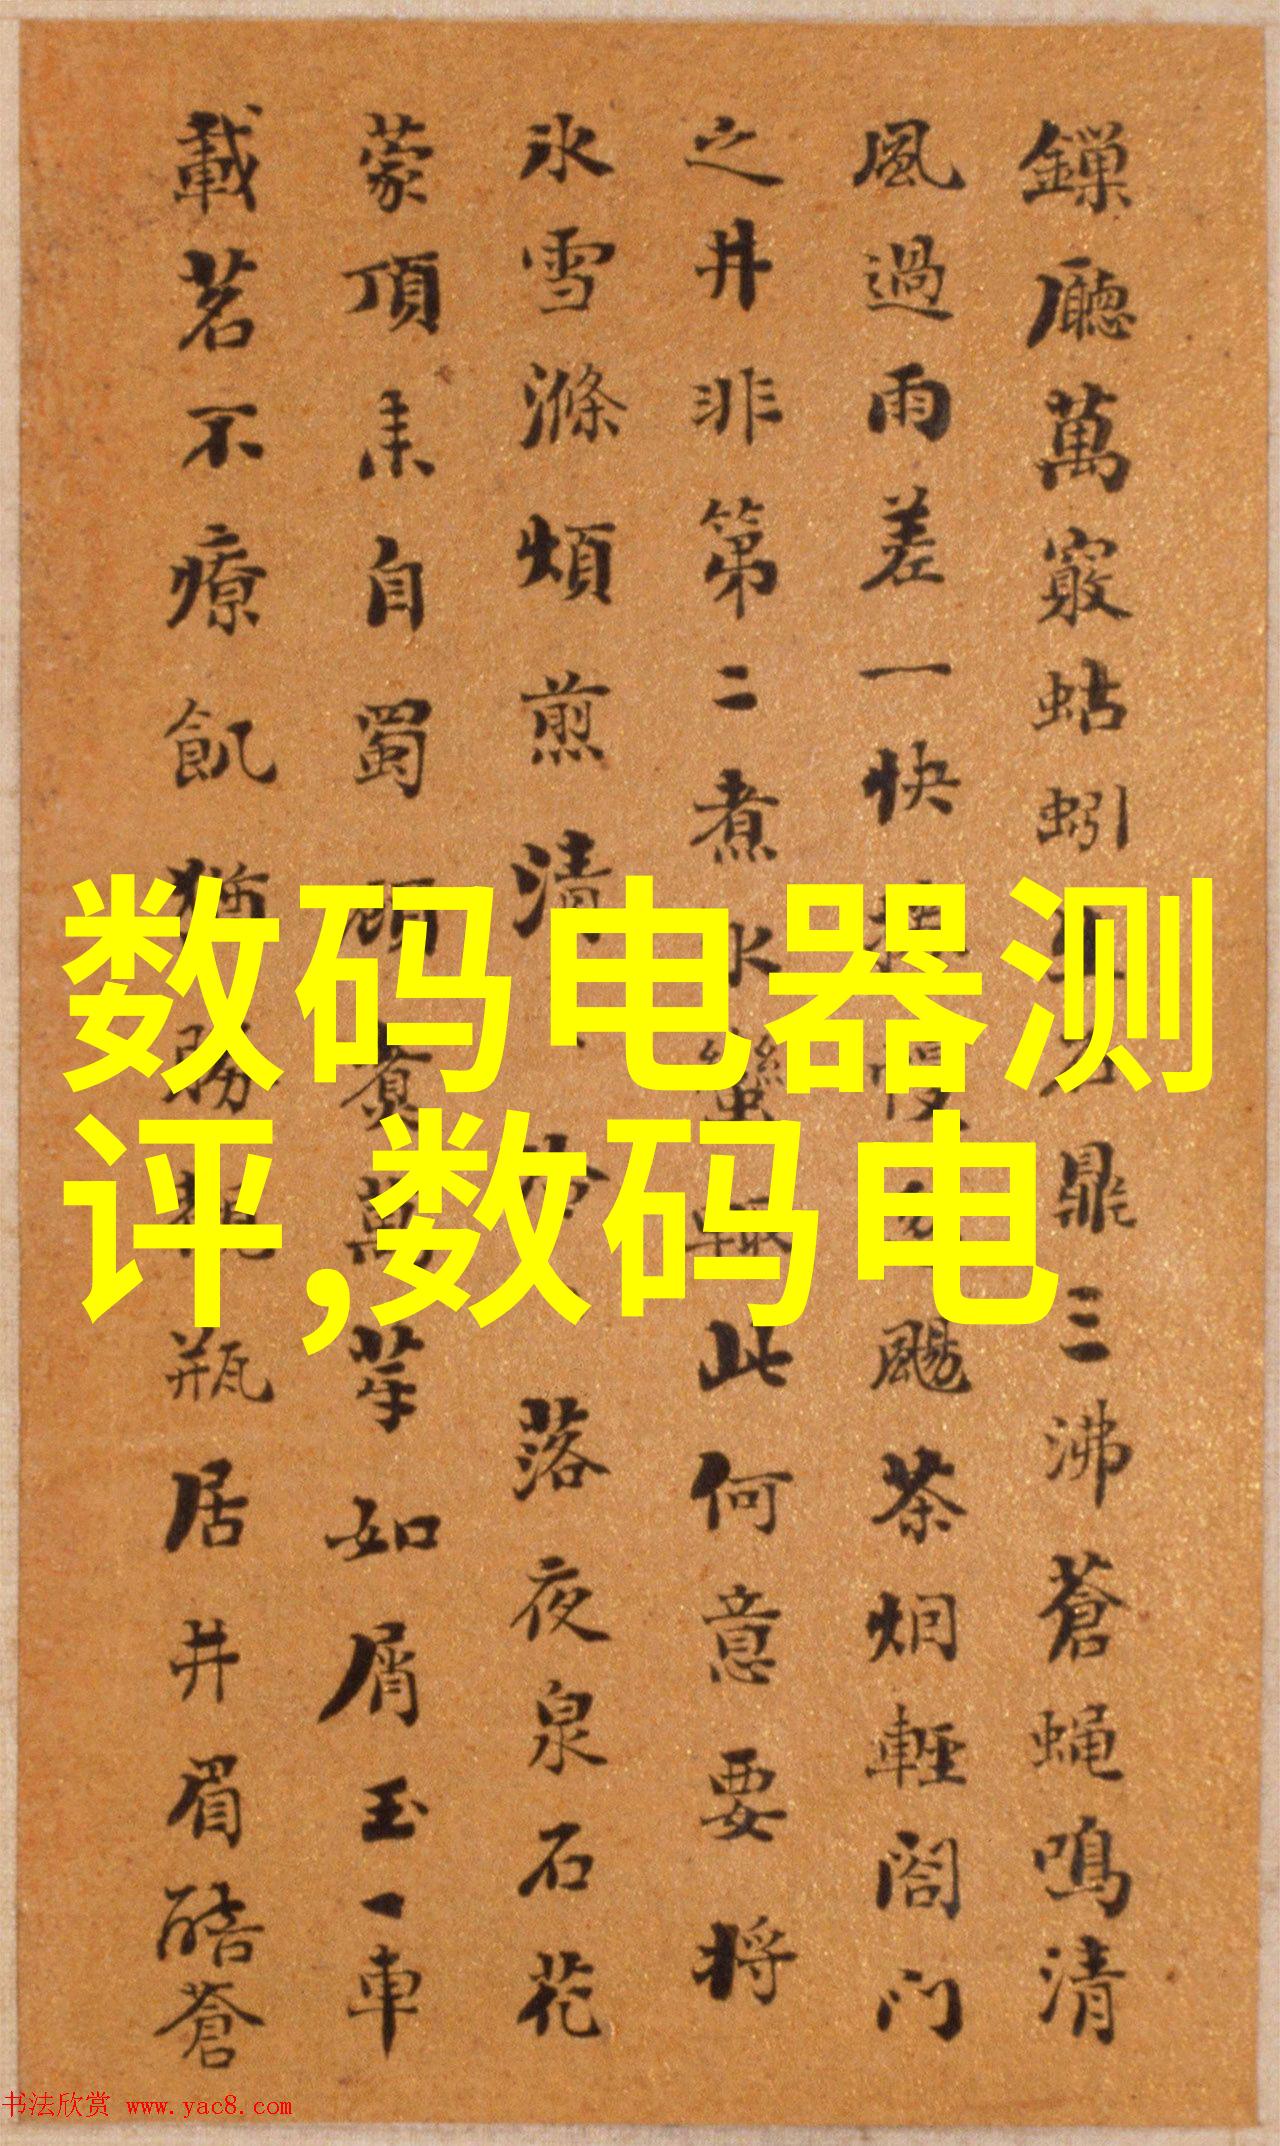 廳萬竅蛄蚓鼎三沸蒼蝇鳴清
風過雨差一快颺茶烟輕閤門
之井非第二煮水輒此何意要将
氷雪滌煩煎清落夜泉石花
蒙頂来自蜀顧萬芽如屑玉一車
載茗不療飢猶勝瓶居井眉酷蒼
数码电器测
评,数码电
书法欣赏 www.yac8.com